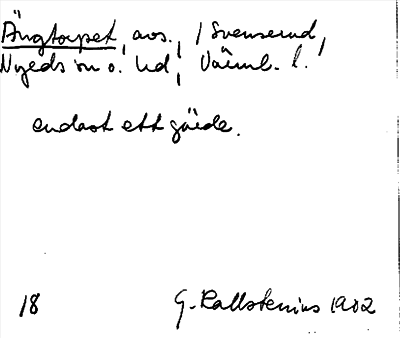 Ängtorpet, avs., i Svenserud,
Nyeds sn o. hd, Värml. l.
endast ett gärde.
18 G. Kallstenius 1902